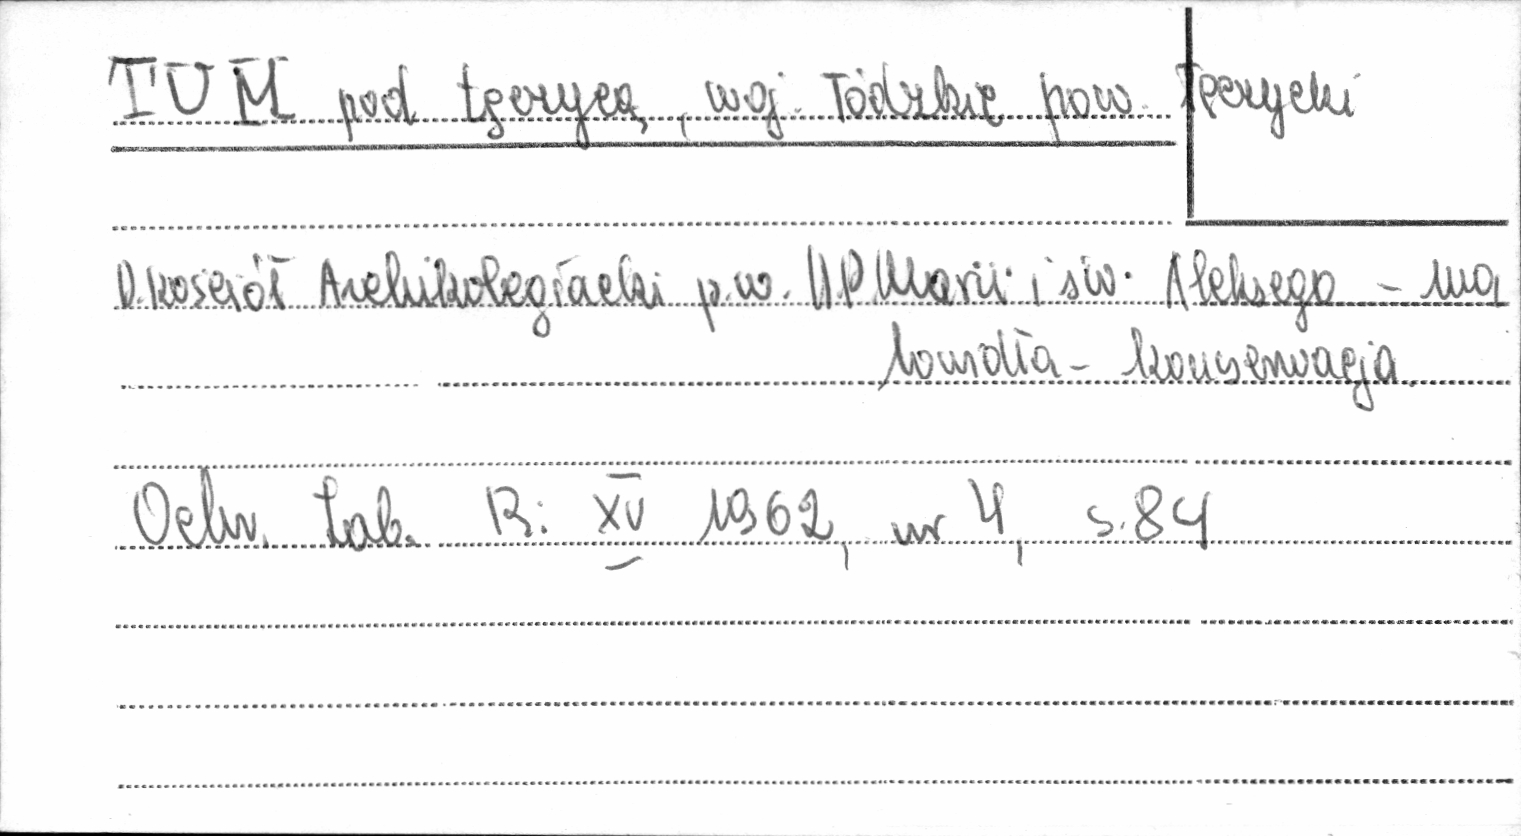 TUM pod Łęczycą, woj. Łódzkie pow. Łęczycki
D. kościół Archikolegiacki p.w. N.P. Marii i św. Aleksego – ma
lowidła – konserwacja.
Ochr. Zab. R: XV 1962, nr 4, s. 84